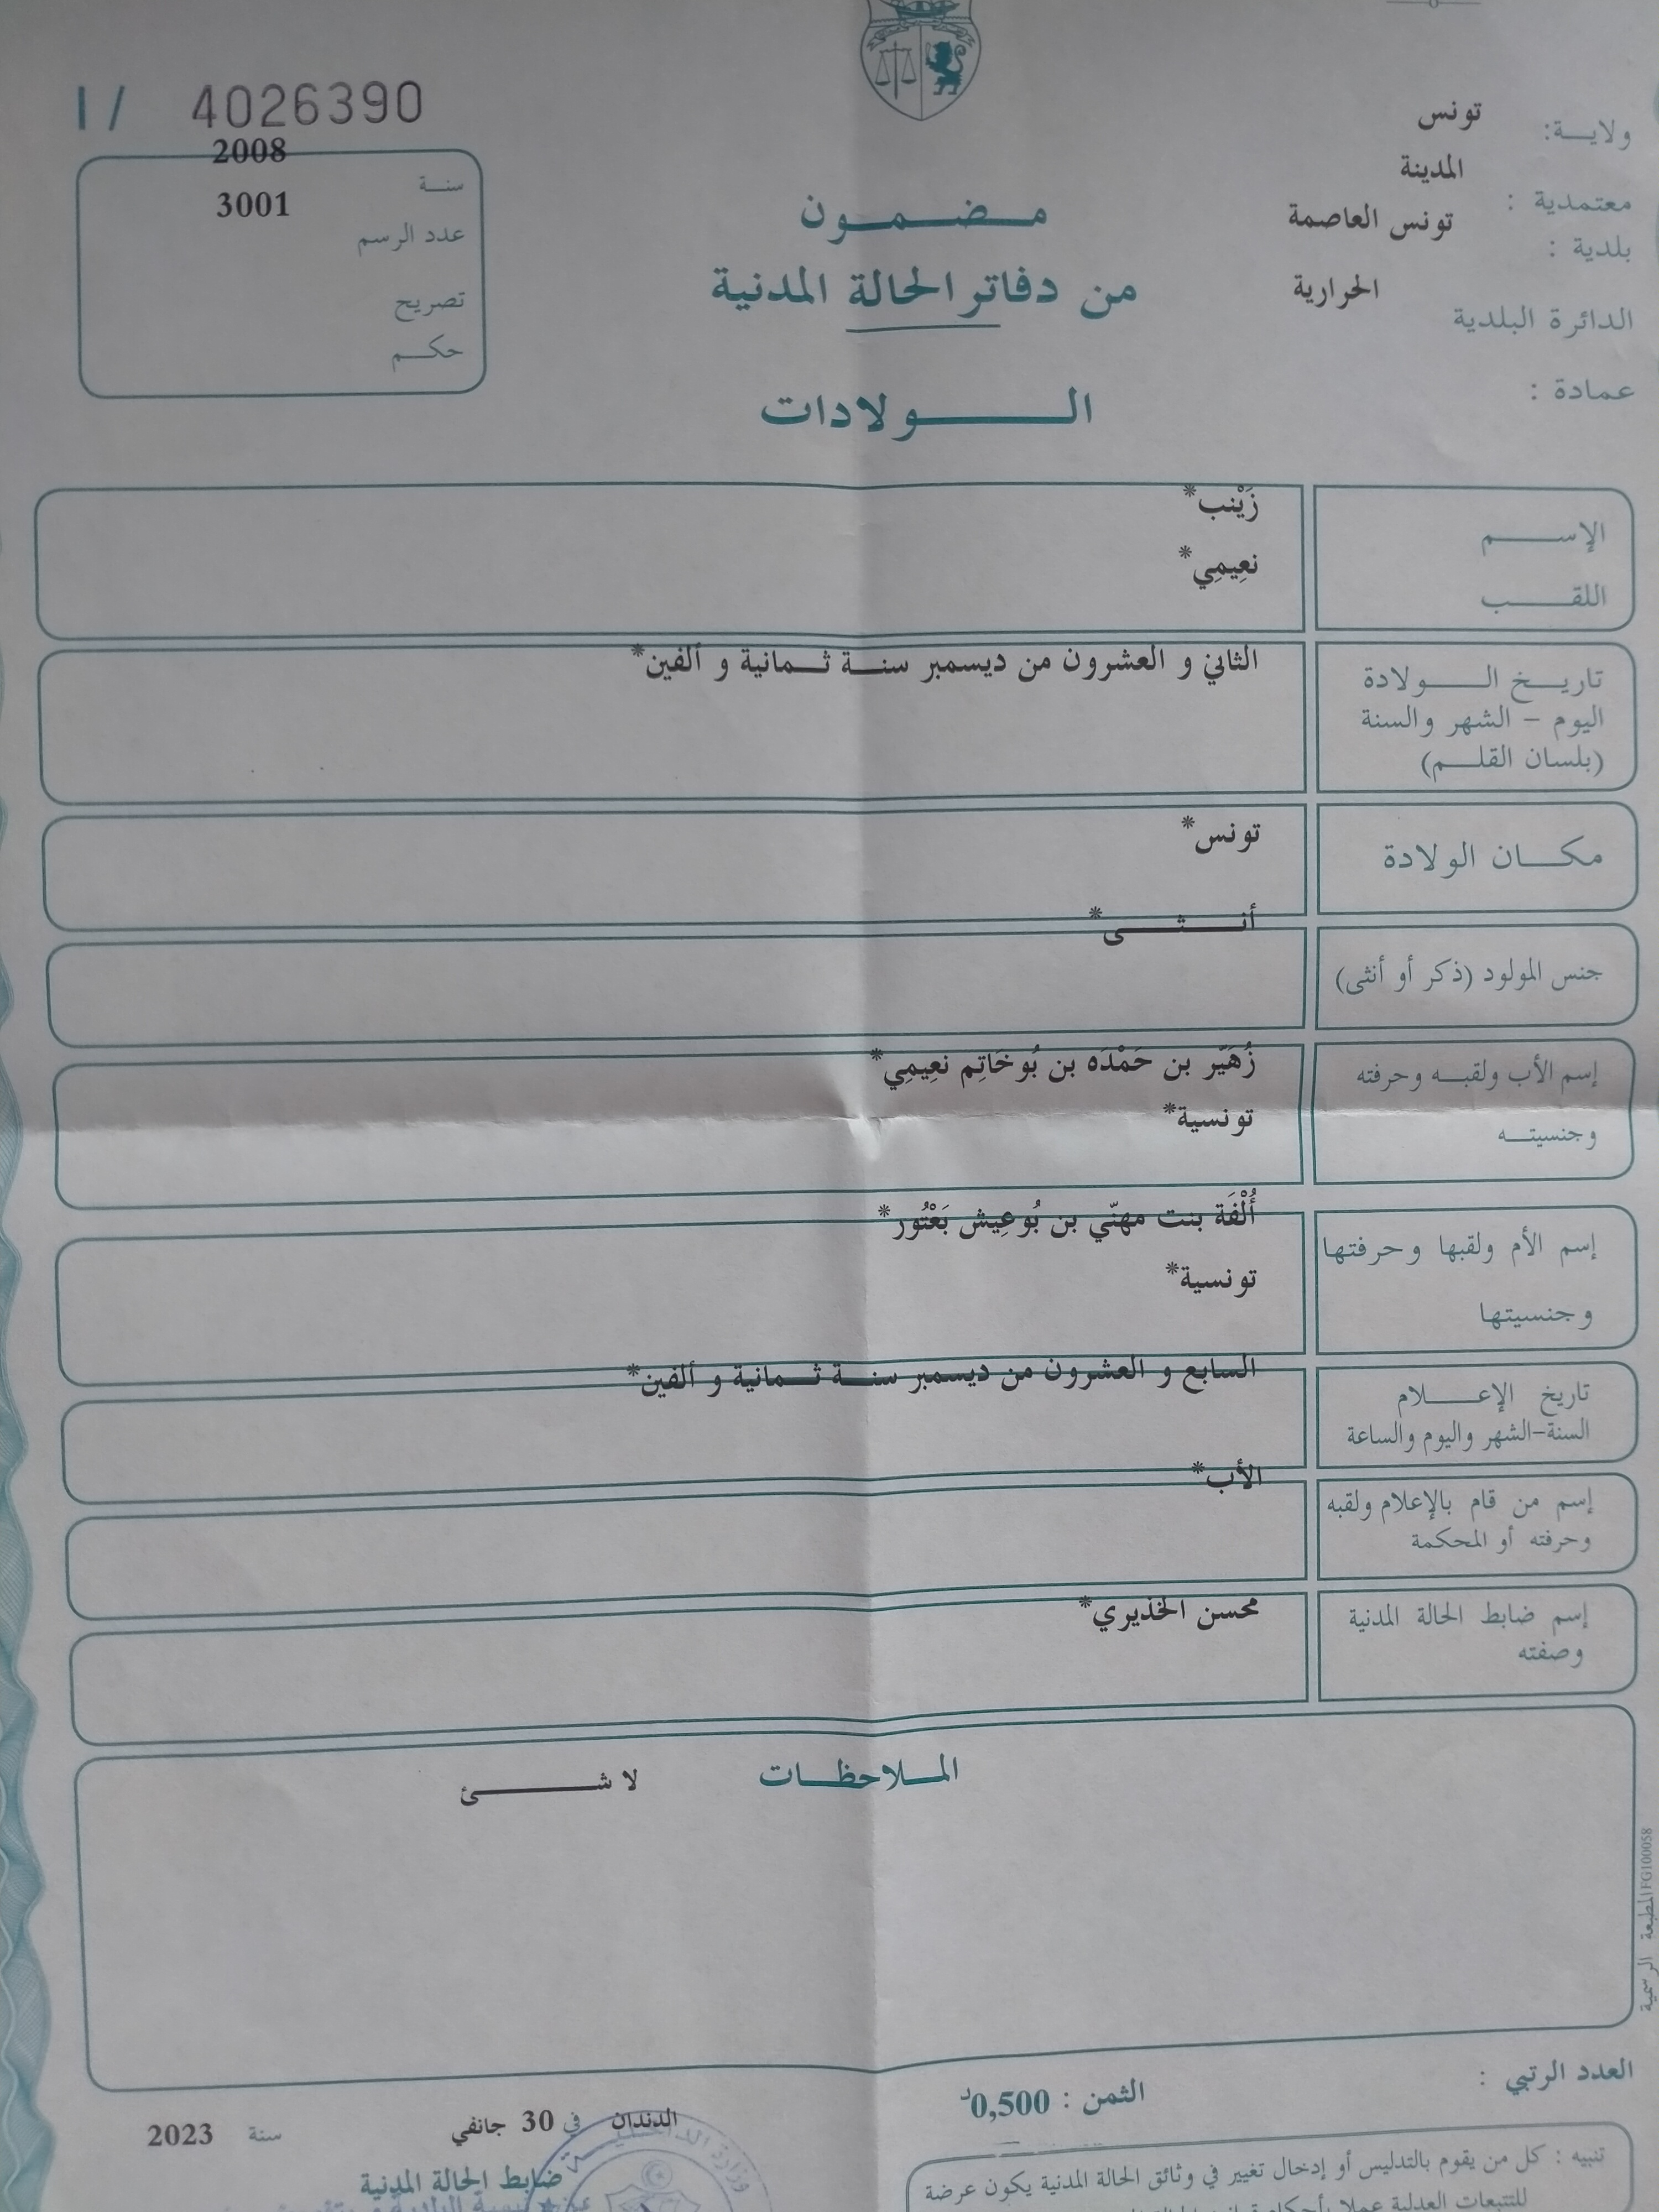 I / 4026390
سنة 2008
عدد الرسم 3001
تصريح
حكم
ولاية: تونس
معتمدية : المدينة
بلدية : تونس العاصمة
الدائرة البلدية الحرارية
عمادة :
مضمون
من دفاتر الحالة المدنية
الولادات
الإسم زَيْنب*
اللقب نعِيمِي*
تاريخ الولادة الثاني و العشرون من ديسمبر سنة ثمانية و ألفين*
اليوم – الشهر والسنة
(بلسان القلم)
مكان الولادة تونس*
جنس المولود (ذكر أو أنثى) أنثى*
إسم الأب ولقبه وحرفته زُهَيّر بن حَمْدَه بن بُوخَاتِم نعِيمِي*
وجنسيته تونسية*
إسم الأم ولقبها وحرفتها أُلْفَة بنت مهنّي بن بُوعِيش بَعْتُور*
وجنسيتها تونسية*
تاريخ الإعلام السابع و العشرون من ديسمبر سنة ثمانية و ألفين*
السنة–الشهر واليوم والساعة
إسم من قام بالإعلام ولقبه الأب*
وحرفته أو المحكمة
إسم ضابط الحالة المدنية محسن الخذيري*
وصفته
الملاحظات لا شئ
المطبعة الرسمية FG100058
العدد الرتبي :
الثمن : 0,500د
الدندان في 30 جانفي سنة 2023
ضابط الحالة المدنية
وزارة الداخلية
تنبيه : كل من يقوم بالتدليس أو إدخال تغيير في وثائق الحالة المدنية يكون عرضة
للتتبعات العدلية عملا بأحكام